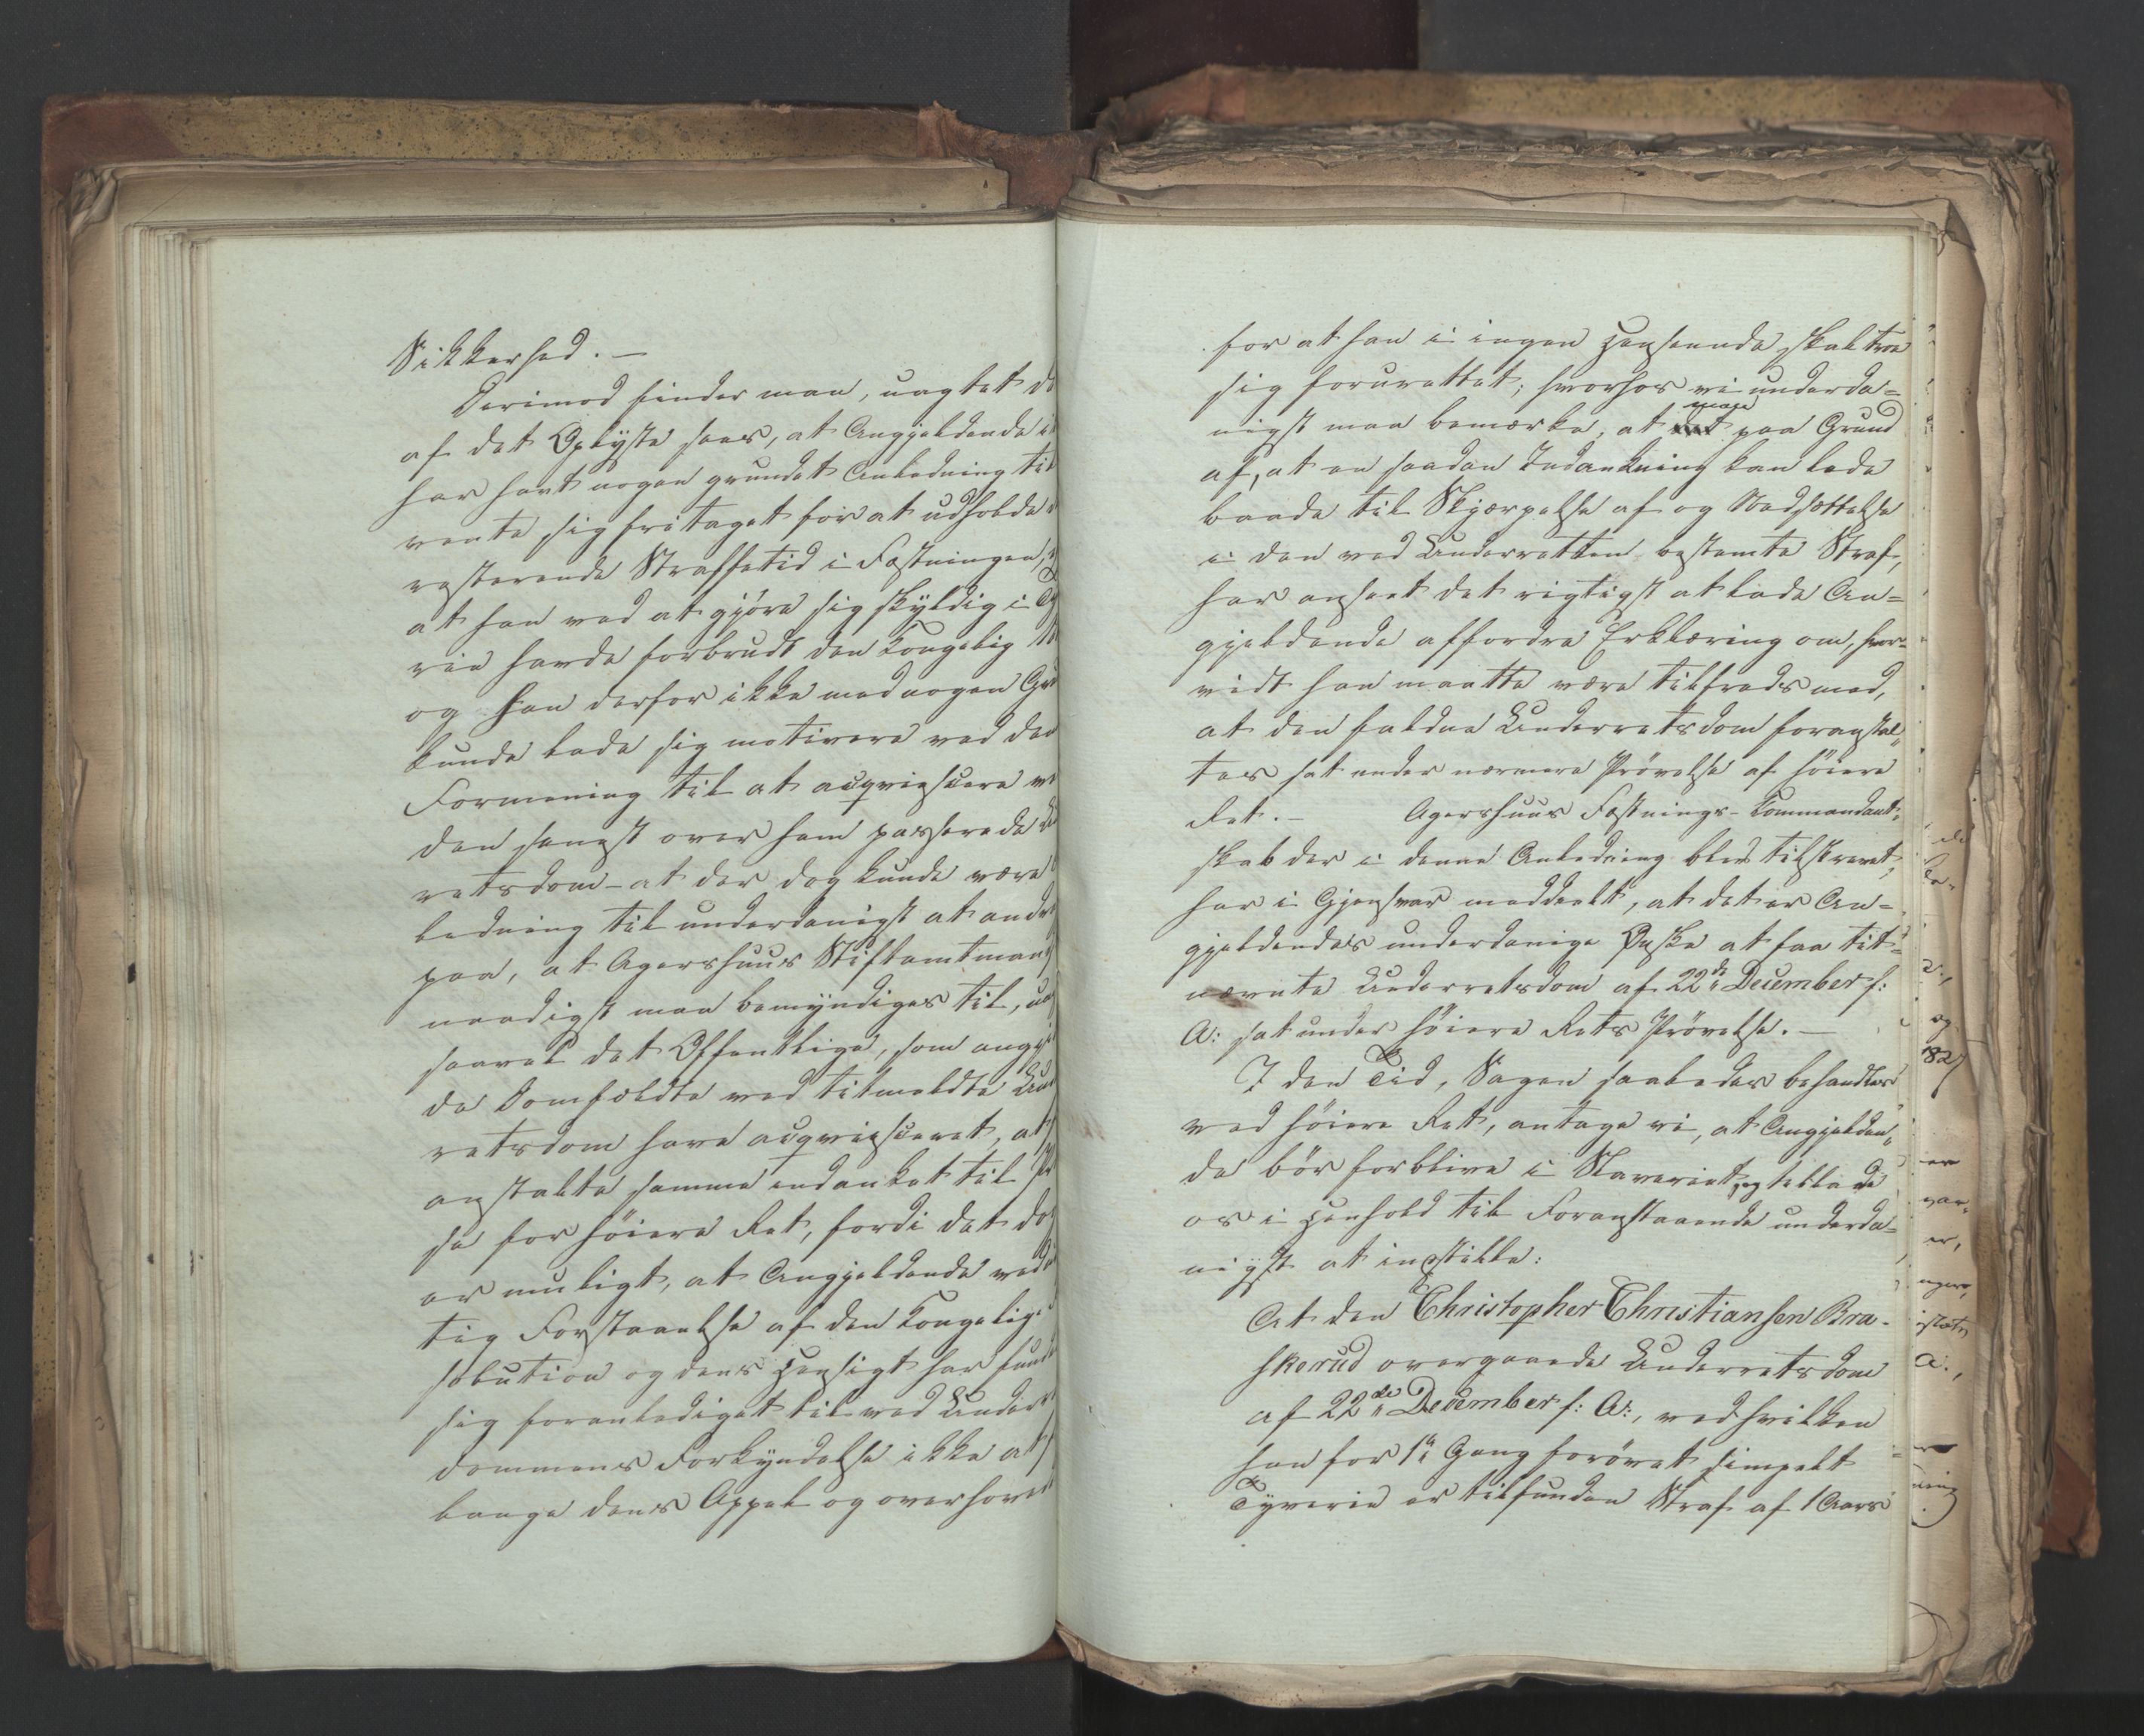 Sikkerhed. —
Derimod finder man, uagtet d
af det Oplyste sees, at Angjeldende i
har havt nogen grundet Anledning til
vente sig fritaget for at udholde
resterende Straffetid i Fæstningen,
at han ved at gjöre sig skyldig i Ty
rie havde forbrudt den Kongelig
og han derfor ikke med nogen Gru
kunde lade sig motivere ved den
Formening til at acqviescere ve
den senest over ham passerede
retsdom – at der dog kunde være
ledning til underdanigst at andr
paa, at Agershuus Stiftamtmand
naadigst maa bemyndiges til, ua
saavel det Offentlige, som angj
de Domfældte ved titmeldte Und
retsdom have acqviesceret, at
anstalte samme indanket til Pr
se for höiere Ret, fordi det do
er muligt, at Angjeldende ved
tig Forstaaelse af den Kongelig
solution og dens Hensigt har fund
sig foranlediget til ved Under
dommens Forkyndelse ikke at
lange dens Appel og overhoved
for at han i ingen Henseende skal troe
sig forurettet; hvorhos vi underda-
nigst maa bemærke, at man paa Grund
af, at en saadan Indankning kan lede
baade til Skjærpelse af og Nedsættelse
i den ved Underretten bestemte Straf,
har anseet det rigtigst at lade An-
gjeldende affordre Erklæring om, hvor-
vidt han maatte være tilfreds med,
at den faldne Underretsdom foranstal-
tes sat under nærmere Prövelse af höiere
Ret. – Agershuus Fæstnings-Commandant-
skab der i denne Anledning blev tilskrevet,
har i Gjensvar meddeelt, at det er An-
gjeldendes underdanige Önske at faa tit-
nævnte Underretsdom af 22de December f:
A: sat under höiere Rets Prövelse. —
I den Tid, Sagen saaledes behandles
ved höiere Ret, antage vi, at Angjelden-
de bör forblive i Slaveriet, og tillade
os i Henhold til Foranstaaende underda-
nigst at indstille:
At den Christopher Christiansen Bra-
skerud overgaaede Underretsdom
af 22de December f: A:, ved hvilken
han for 1ste Gang forövet simpelt
Tyverie er tilfunden Straf af 1 Aars